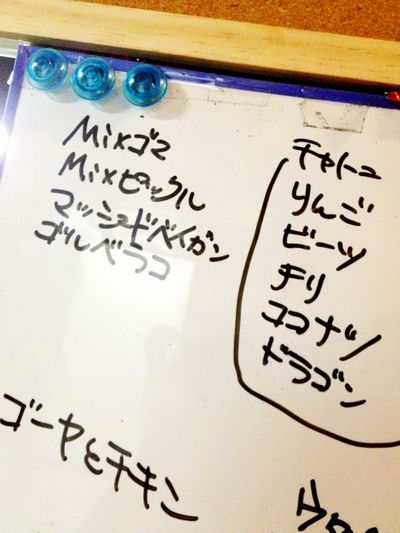 Mixゴマ
Mixピックル
マッシュドベイガン
ゴルベラコ
チャトニ
りんご
ビーツ
チリ
ココナツ
ドラゴン
ゴーヤとチキン